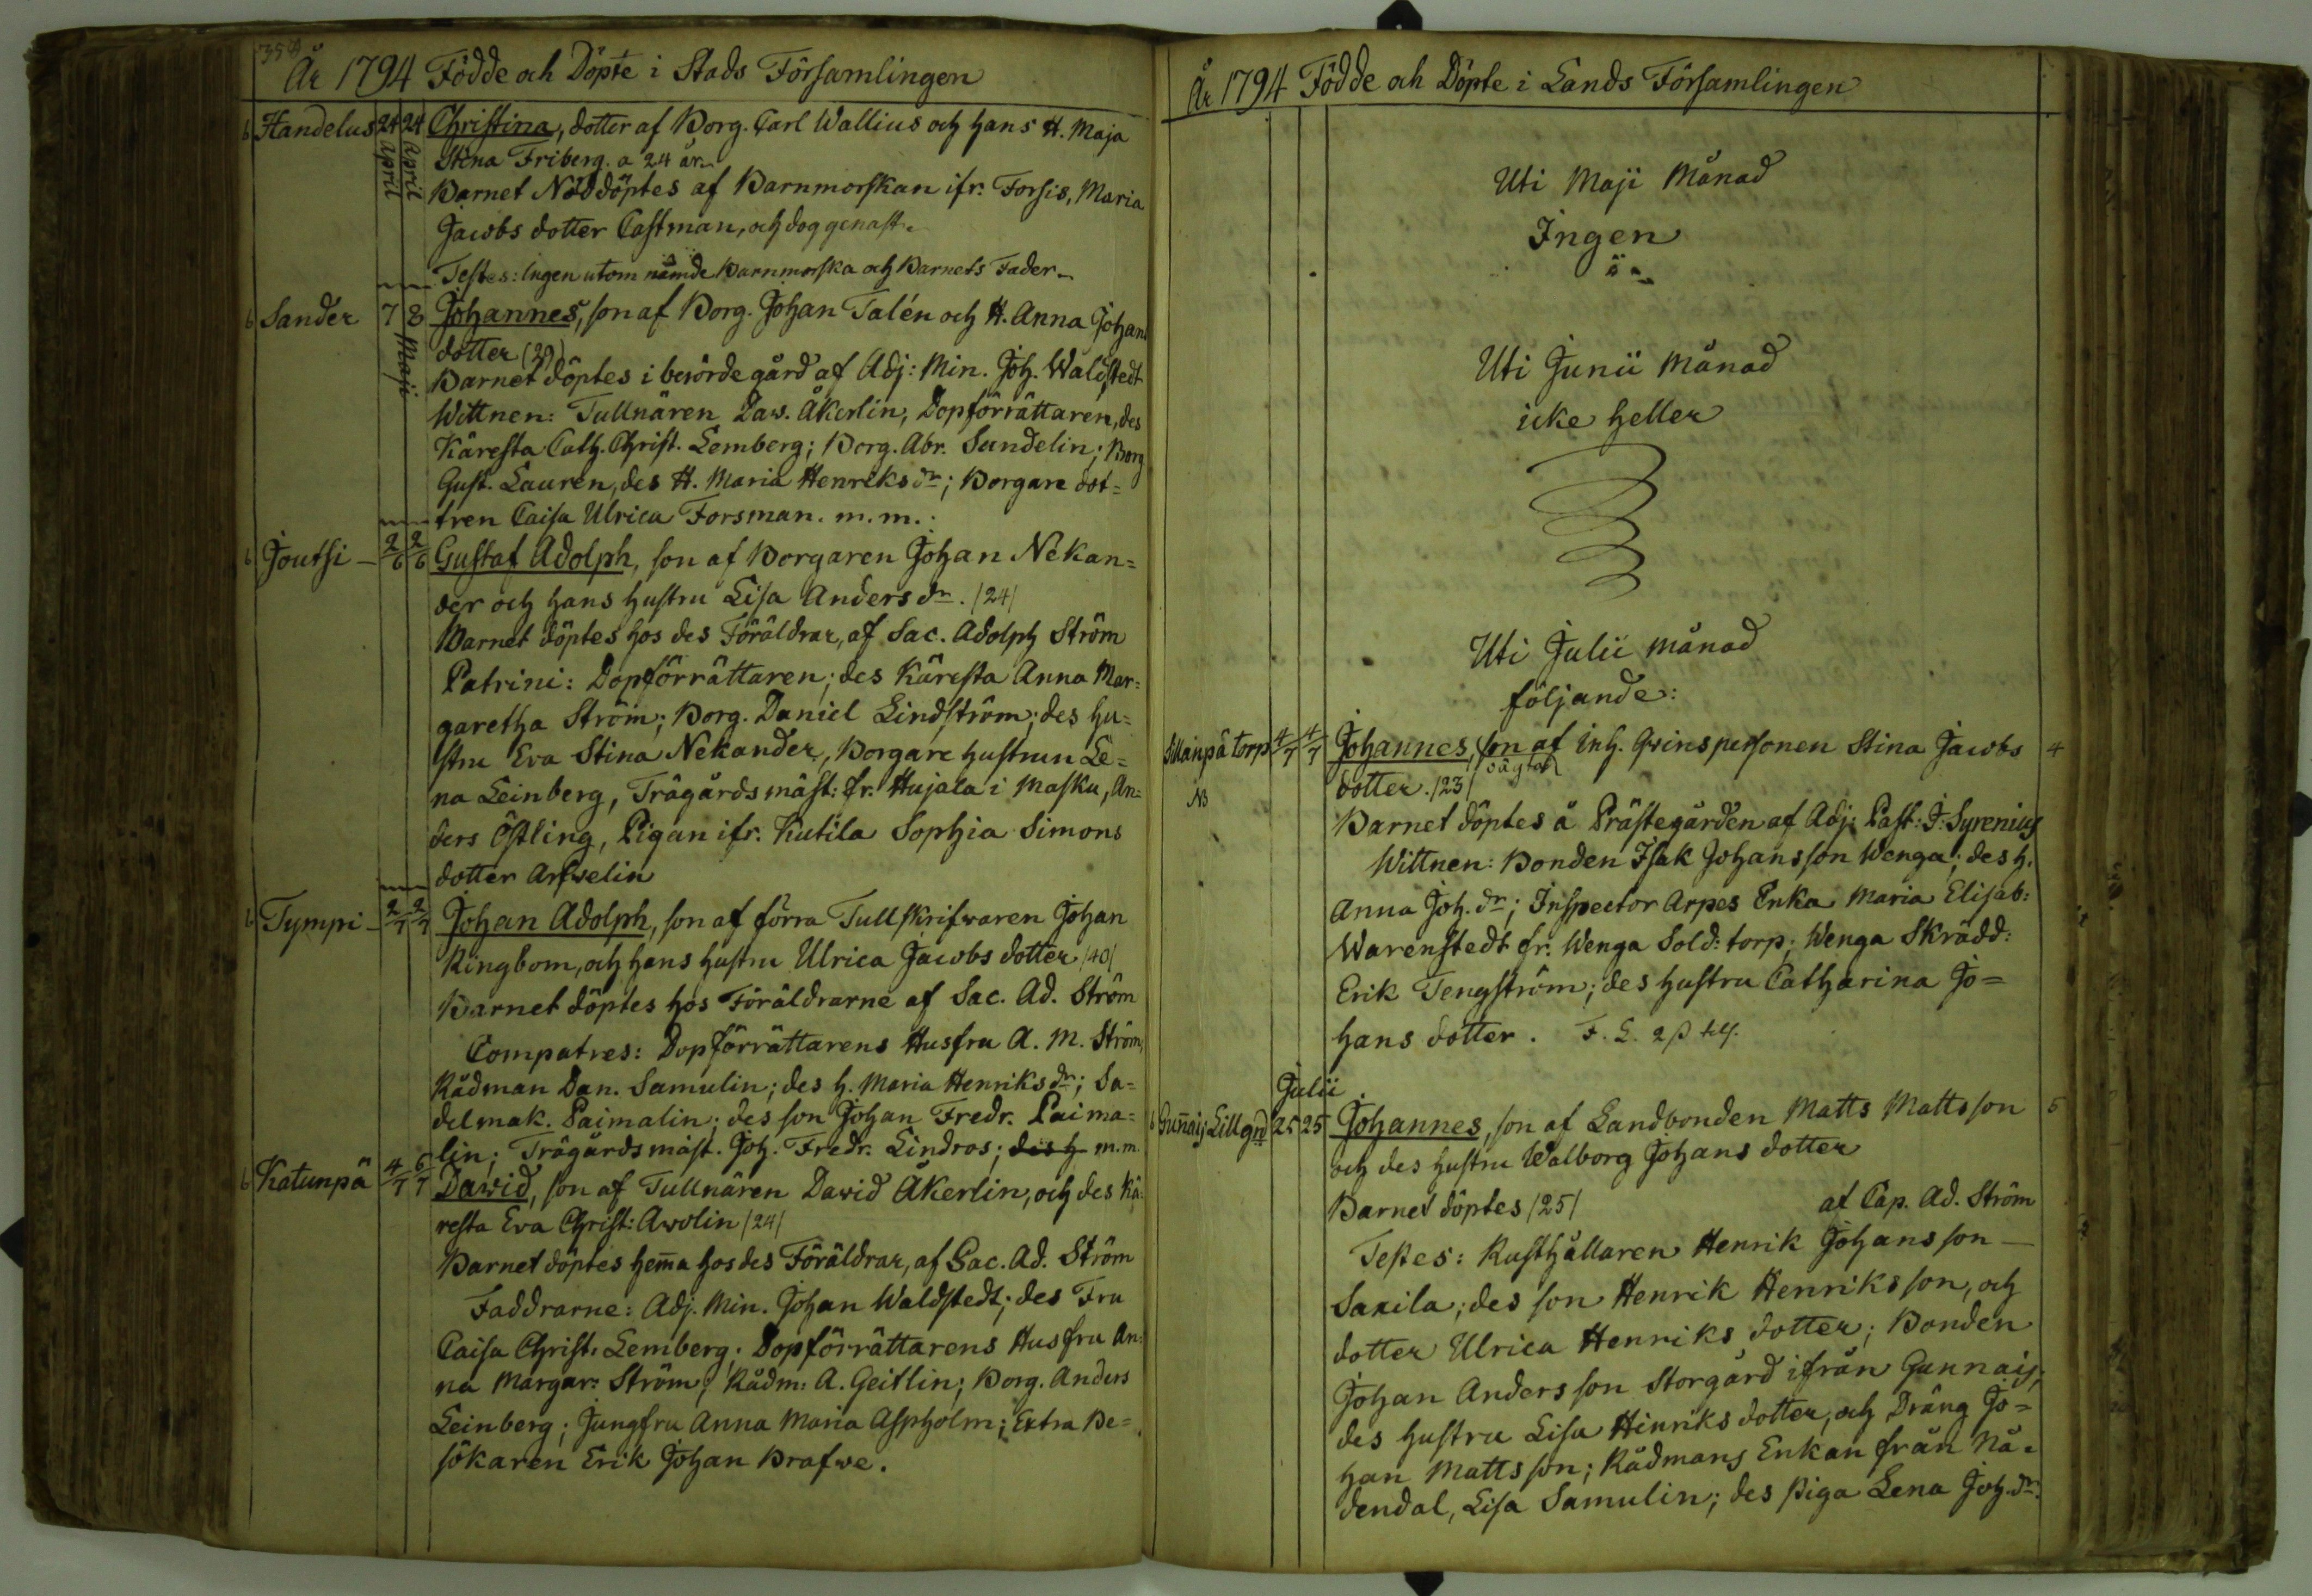 354
År 1794 Födde och Döpte i Stads Församlingen
6 Handelus 24 April 24 April Christina, dotter af Borg. Carl Wallius och hans H. Maja
Stina Friberg. a 24 år.
Barnet Nöddöptes af Barnmorskan ifr: Forsis, Maria
Jacobs dotter Castman, och dog genast.
Testes: Ingen utom nämde Barnmorska och Barnets Fader.
6 Sander 7 8 Maji Johannes, son af Borg. Johan Talén och H. Anna Johans
dotter (29)
Barnet döptes i berörde gård af Adj: Min. Joh. Waldstedt
Wittnen: Tullnären Daw. Åkerlin, Dopförrättaren, des
Käresta Cath. Christ. Lemberg; Borg. Abr. Sundelin; Borg
Gust. Lauren, des H. Maria Henriks dr; Borgare dot=
tren Caisa Ulrica Forsman. m. m.
6 Joutsi 2/6 2/6 Gustaf Adolph, son af Borgaren Johan Nekan=
der och hans hustru Lisa Anders dr. /24/
Barnet döptes hos des Föräldrar, af Sac. Adolph Ström
Patrini: Dopförrättaren; des Käresta Anna Mar=
garetha Ström; Borg. Daniel Lindström; des hu=
stru Eva Stina Nekander, Borgare hustrun Le=
na Leinberg, Trägårdsmäst: fr. Hujala i Masku, An=
ders Östling, Pigan ifr. Kutila Sophia Simons
dotter Arfwelin
6 Tympi 2/7 2/7 Johan Adolph, son af förra Tullskrifwaren Johan
Ringbom, och hans hustru Ulrica Jacobs dotter /40/
Barnet döptes hos Föräldrarne af Sac. Ad. Ström
Compatres: Dopförrättarens Husfru A. M. Ström,
Rådman Dan. Samulin; des h. Maria Henriks dr; Sa=
delmak. Paimalin; des son Johan Fredr. Paima=
lin; Trägårdsmäst. Joh. Fredr. Lindros; des h m.m.
6 Katunpä 4/7 6/7 Dawid, son af Tullnären Dawid Åkerlin, och des Kä=
resta Eva Christ: Awolin /24/
Barnet döptes hem̄a hos des Föräldrar, af Sac. Ad. Ström
Faddrarne: Adj. Min. Johan Waldstedt; des Fru
Caisa Christ. Lemberg; Dopförrättarens Husfru An=
na Margar: Ström; Rådm: A. Geitlin; Borg. Anders
Leinberg; Jungfru Anna Maria Aspholm; Extra Be=
sökaren Erik Johan Brafwe.
År 1794 Födde och Döpte i Lands Församlingen
Uti Maji Månad
Ingen
Uti Junii Månad
icke heller
Uti Julii månad
följande:
Sillanpä torp 4/7 4/7 Johannes, son af inh. Qwinspersonen Stina Jacobs 4
NB dotter. /23/
Barnet döptes å Prästegården af Adj: Past: J: Syrenius
Wittnen: Bonden Isak Johansson Wenga; des h.
Anna Joh. dr; Inspector Arpes Enka Maria Elisab:
Warenstedt fr. Wenga Sold: torp; Wenga Skrädd:
Erik Tengström; des hustru Catharina Jo=
hans dotter. F. L. 2 ß
Julii
6 Gun̄ais Lillgrd 25 25 Johannes, son af Landbonden Matts Mattsson 5
och des hustru Walborg Johans dotter
Barnet döptes /25/ af Cap. Ad. Ström
Testes: Rusthållaren Henrik Johansson
Saxila; des son Henrik Henriksson, och
dotter Ulrica Henriks dotter; Bonden
Johan Andersson Storgård ifrån Gunnais;
des hustru Lisa Hinriks dotter, och Dräng Jo=
han Mattsson; Rådmans Enkan från Nå=
dendal, Lisa Samulin; des piga Lena Joh. dr.